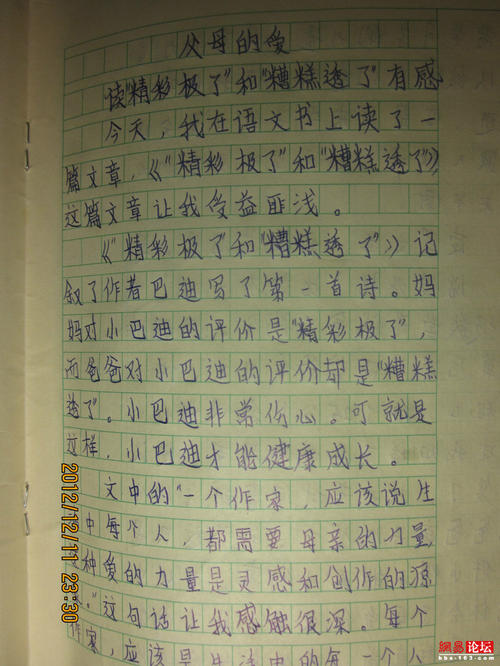 父母的爱
读“精彩极了”和“糟糕透了”有感
今天，我在语文书上读了一
篇文章，《“精彩极了”和“糟糕透了”》
这篇文章让我受益匪浅。
《“精彩极了和“糟糕透了”》记
叙了作者巴迪写了第一首诗。妈
妈对小巴迪的评价是“精彩极了”，
而爸爸对小巴迪的评价却是“糟糕
透了”。小巴迪非常伤心。可就是
这样，小巴迪才能健康成长。
文中的“一个作家，应该说生
中每个人，都需要母亲的力量，
种爱的力量是灵感和创作的源
。”这句话让我感触很深。每个
作家，应该是生活中的每一个人
2012/12/11 23:30
网易论坛
bbs.163.com